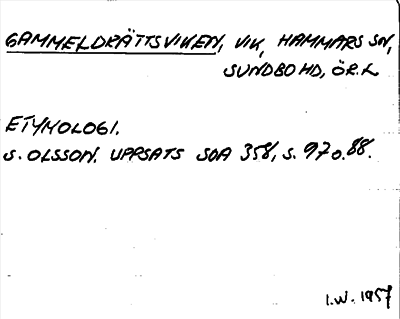 GAMMELDRÄTTSVIKEN, VIK, HAMMARS SN,
SUNDBO HD, ÖR.L
ETYMOLOGI.
S. OLSSON. UPPSATS SOA 358, S. 97 o. 88.
I.W. 1957